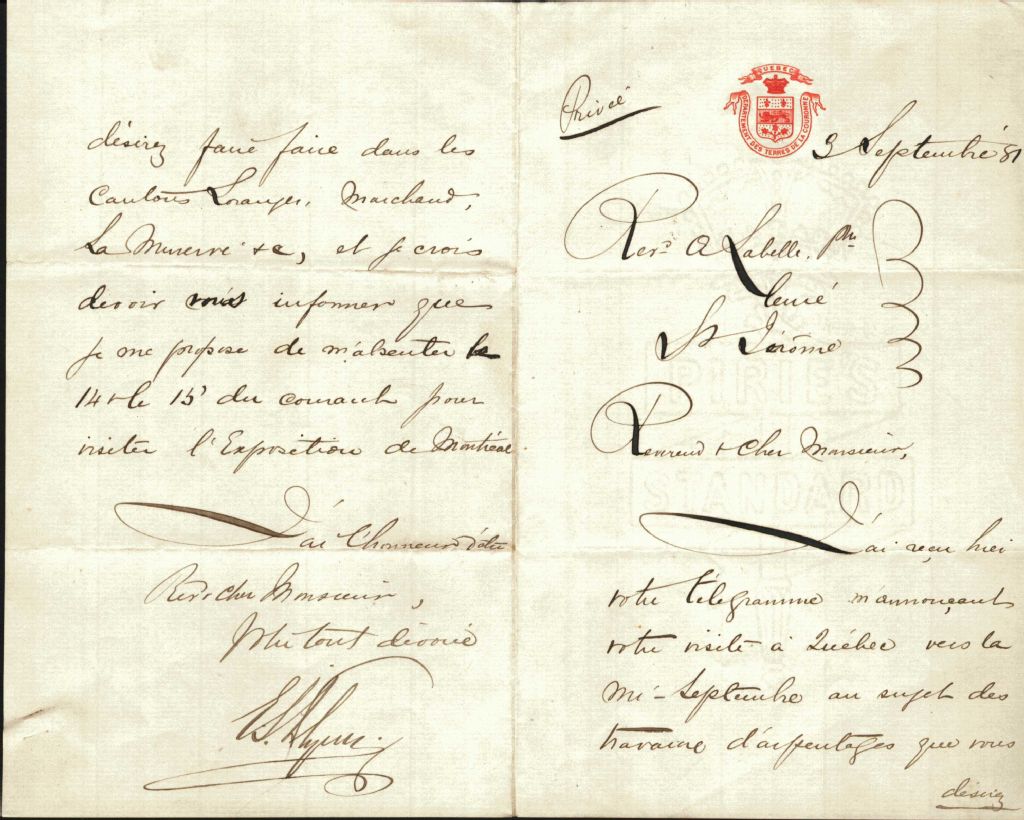 QUEBEC
DEPARTEMENT DES TERRES DE LA COURONNE
Privée
3 Septembre 81
Revd A Labelle, Ptre
Curé
St Jérôme
Reverend & Cher Monsieur,
J'ai reçu hier
votre télégramme m'annonçant
votre visite à Québec vers la
mi-Septembre au sujet des
travaux d'arpentages que vous
désirez
désirez faire faire dans les
cantons Loranger, Marchand,
La Minerve &c, et je crois
devoir vous informer que
je me propose de m'absenter le
14 & le 15 du courant pour
visiter l'Exposition de Montréal
J'ai l'honneur d'être
Revd & Cher Monsieur,
Votre tout dévoué
E.J. Flynn
PIRIE'S
STANDARD